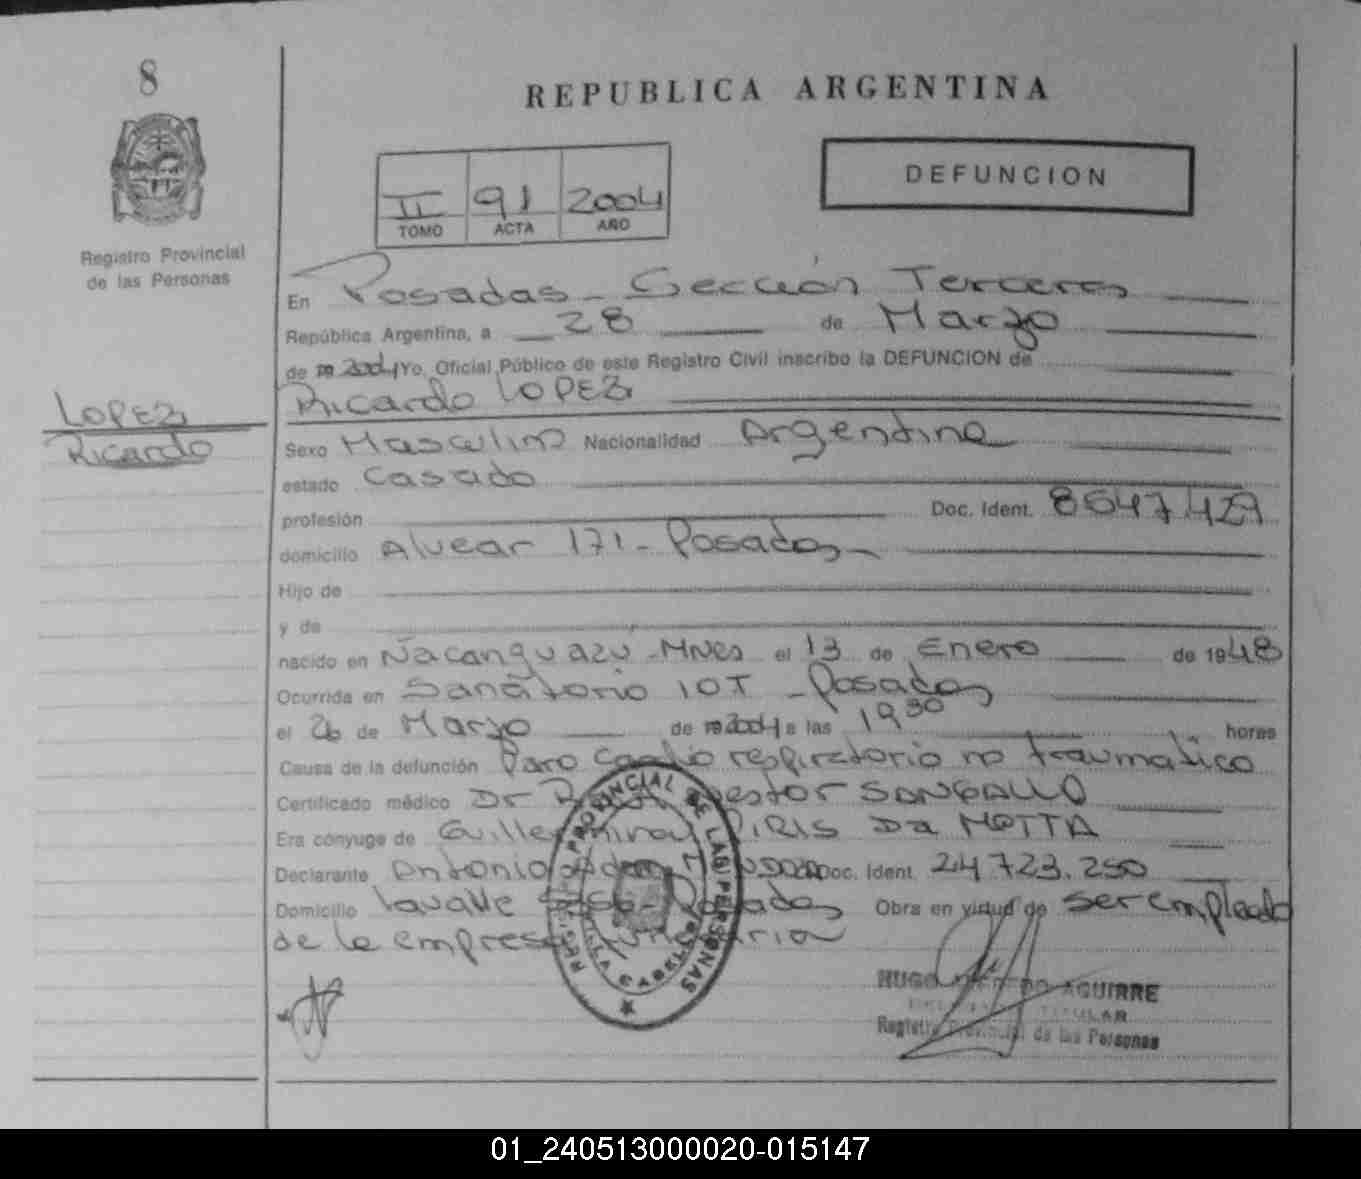 8
REPUBLICA ARGENTINA
DEFUNCION
II 91 2004
TOMO ACTA AÑO
Registro Provincial
de las Personas
En Posadas - Sección Tercera
República Argentina, a 28 de Marzo
de 19 2004 Yo, Oficial Público de este Registro Civil inscribo la DEFUNCION de
LOPEZ Ricardo LOPEZ
Ricardo
Sexo Masculino Nacionalidad Argentina
estado Casado
profesión Doc. Ident. 8547.429
domicilio Alvear 171 - Posadas
Hijo de
y de
nacido en Ñacanguazú - Mnes el 13 de Enero de 1948
Ocurrida en Sanatorio IOT - Posadas
el 26 de Marzo de 19 2004 a las 19 30 horas
Causa de la defunción Paro cardio respiratorio no traumatico
Certificado médico Dr Nestor SANGALLO
Era cónyuge de Guillermina PIRIS Da MOTTA
Declarante Antonio Doc. Ident. 24.723.250
Domicilio Lavalle Posadas Obra en virtud de ser empleado
de la empresa funeraria
REGISTRO PROVINCIAL DE LAS PERSONAS
VILLA CABELLO
HUGO AGUIRRE
TITULAR
Registro Provincial de las Personas
01_240513000020-015147